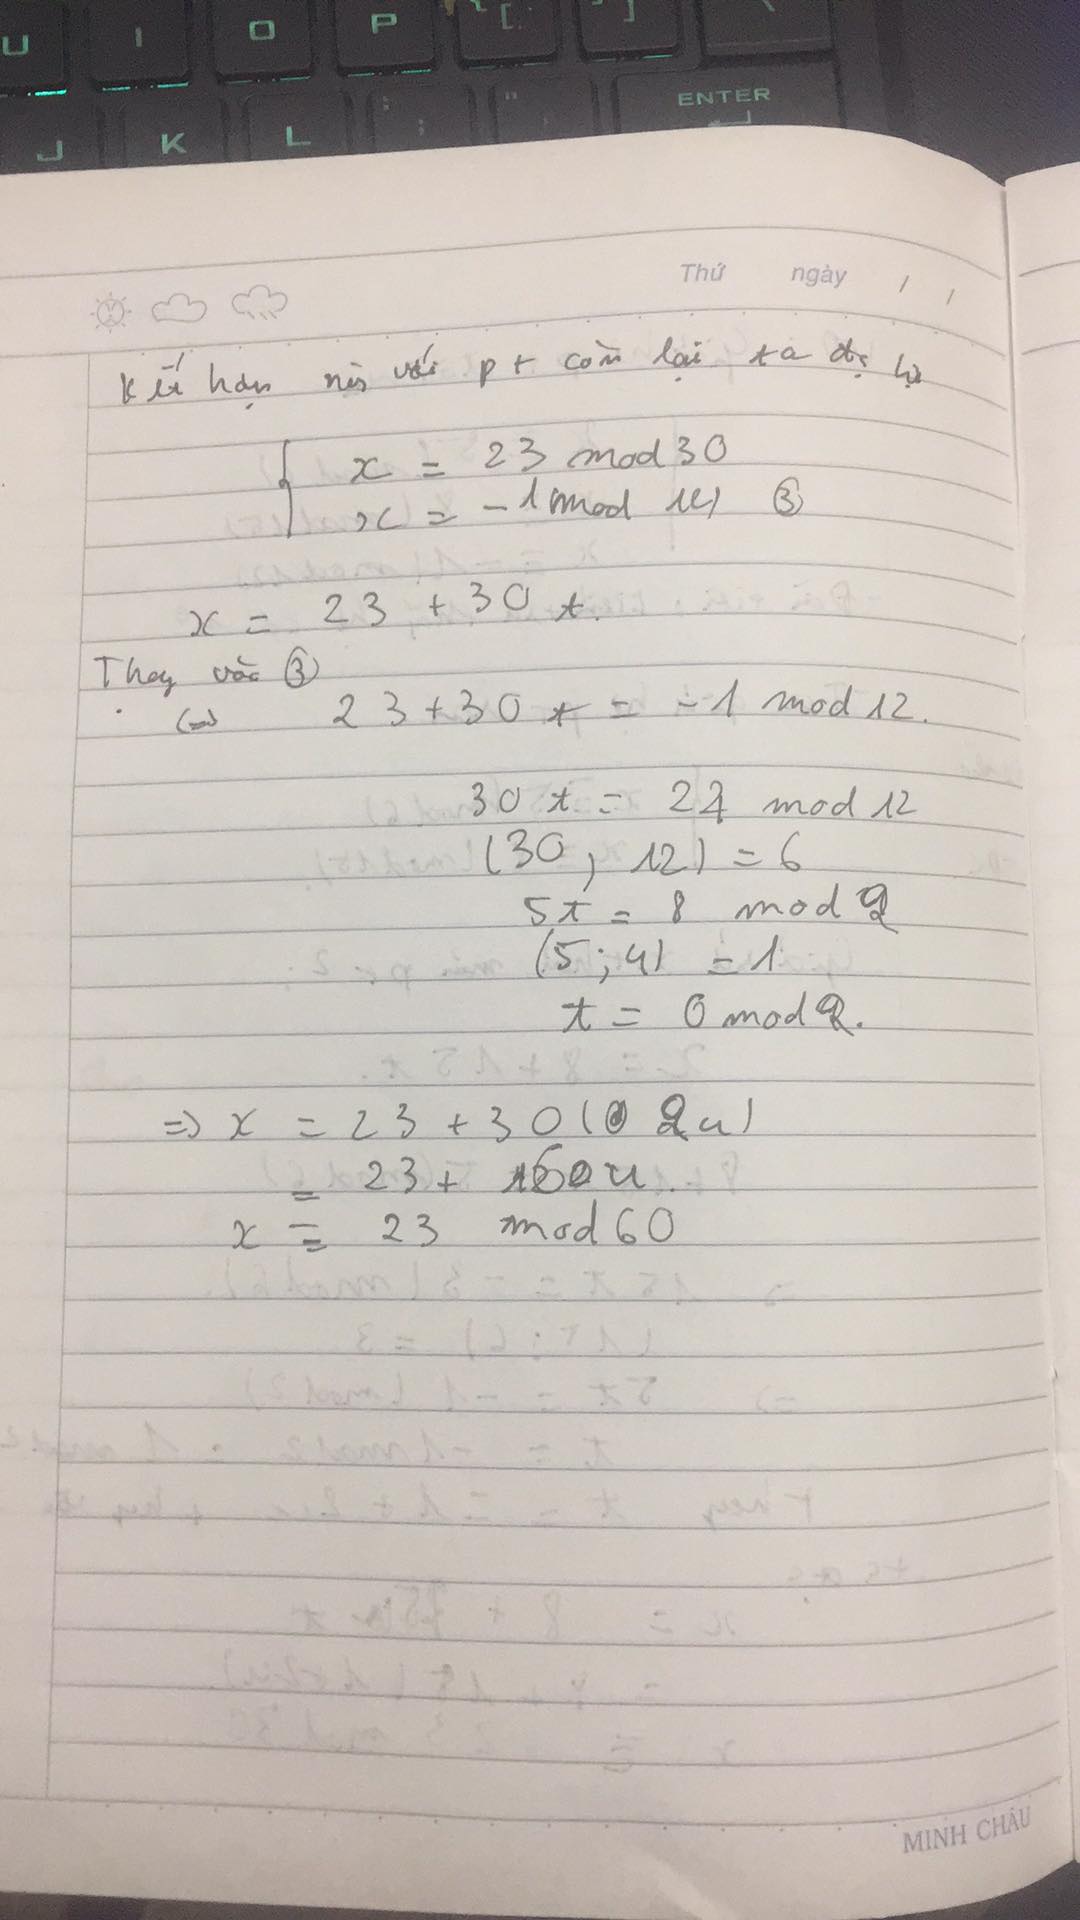 U I O P { [ } ]
J K L : ; " ' ENTER
Thứ ngày / /
Kết hợp n° với pt còn lại ta đc hệ
x = 23 mod 30
x = -1 mod 12 ③
x = 23 + 30 t.
Thay vào ③
(=) 23 + 30 t = -1 mod 12.
30 t = 24 mod 12
(30, 12) = 6
5t = 8 mod 2
(5; 4) = 1
t = 0 mod 2.
=> x = 23 + 30 (0 2u)
= 23 + 60u.
x ≡ 23 mod 60
MINH CHÂU